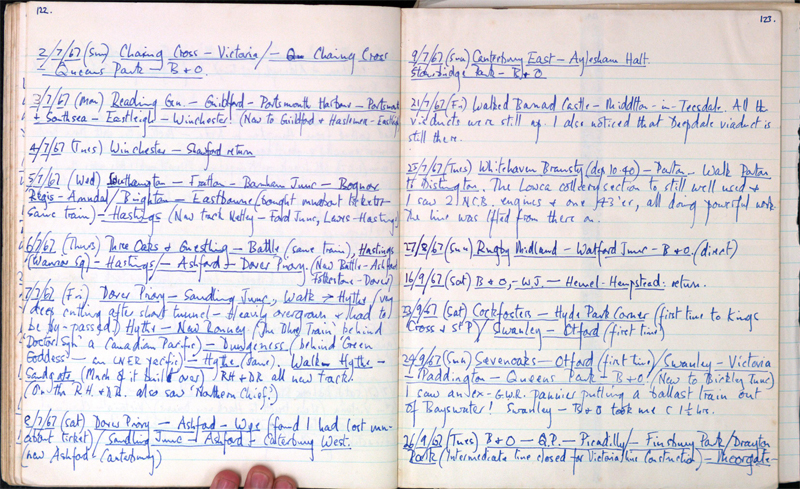 122.
2/7/67 (Sun) Charing Cross – Victoria / – Charing Cross
– Queens Park – B & O.
3/7/67 (Mon) Reading Gen. – Guildford – Portsmouth Harbour – Portsmouth
& Southsea – Eastleigh – Winchester! (New to Guildford & Haslemere – Eastleigh)
4/7/67 (Tues) Winchester – Shawford return
5/7/67 (Wed) Southampton – Fratton – Barnham Junc – Bognor
Regis – Arundel / Brighton – Eastbourne (bought runabout ticket –
same train) – Hastings (New track Netley – Ford Junc, Lewes – Hastings)
6/7/67 (Thurs) Three Oaks & Guestling – Battle (same train), Hastings
(Warrior Sq) – Hastings / – Ashford – Dover Priory. (New Battle – Ashford
Folkestone – Dover)
7/7/67 (Fri) Dover Priory – Sandling Junc, Walk → Hythe (very
deep cutting after short tunnel – heavily overgrown & had to
be by-passed) Hythe – New Romney (In 'Blue Train' behind
'Doctor Syn' a Canadian Pacific) – Dungeness (behind 'Green
Goddess' – an LNER pacific) – Hythe (same). Walk Hythe –
Sandgate (Much of it built over) RH&DR all new track.
(On the R.H.&D.R. also saw 'Northern Chief'.)
8/7/67 (Sat) Dover Priory – Ashford – Wye (found I had lost run-
about ticket) / Sandling Junc – Ashford – Canterbury West.
(new Ashford – Canterbury)
123.
9/7/67 (Sun) Canterbury East – Aylesham Halt.
Stonebridge Park – B & O
21/7/67 (Fri) Walked Barnard Castle – Middleton-in-Teesdale. All the
viaducts were still up. I also noticed that Deepdale viaduct is
still there.
25/7/67 (Tues) Whitehaven Bransty (dep 10.40) – Parton – Walk Parton
to Distington. The Lowca colliery section is still well used &
I saw 2 N.C.B. engines & one '43'er, all doing powerful work.
The line was lifted from there on.
27/8/67 (Sun) Rugby Midland – Watford Junc – B & O. (direct)
16/9/67 (Sat) B & O, – W.J. – Hemel-Hempstead: return.
23/9/67 (Sat) Cockfosters – Hyde Park Corner (first time to Kings
Cross & St P) / Swanley – Otford (first time)
24/9/67 (Sun) Sevenoaks – Otford (first time) / Swanley – Victoria
– Paddington – Queens Park – B & O. (New to Bickley Junc)
I saw an ex-G.W.R. pannier pulling a ballast train out
of Bayswater! Swanley – B & O took me c 1½ hrs.
26/9/67 (Tues) B & O – Q.P. – Picadilly / – Finsbury Park / Drayton
Park (Intermediate line closed for Victoria line Construction) – Moorgate –